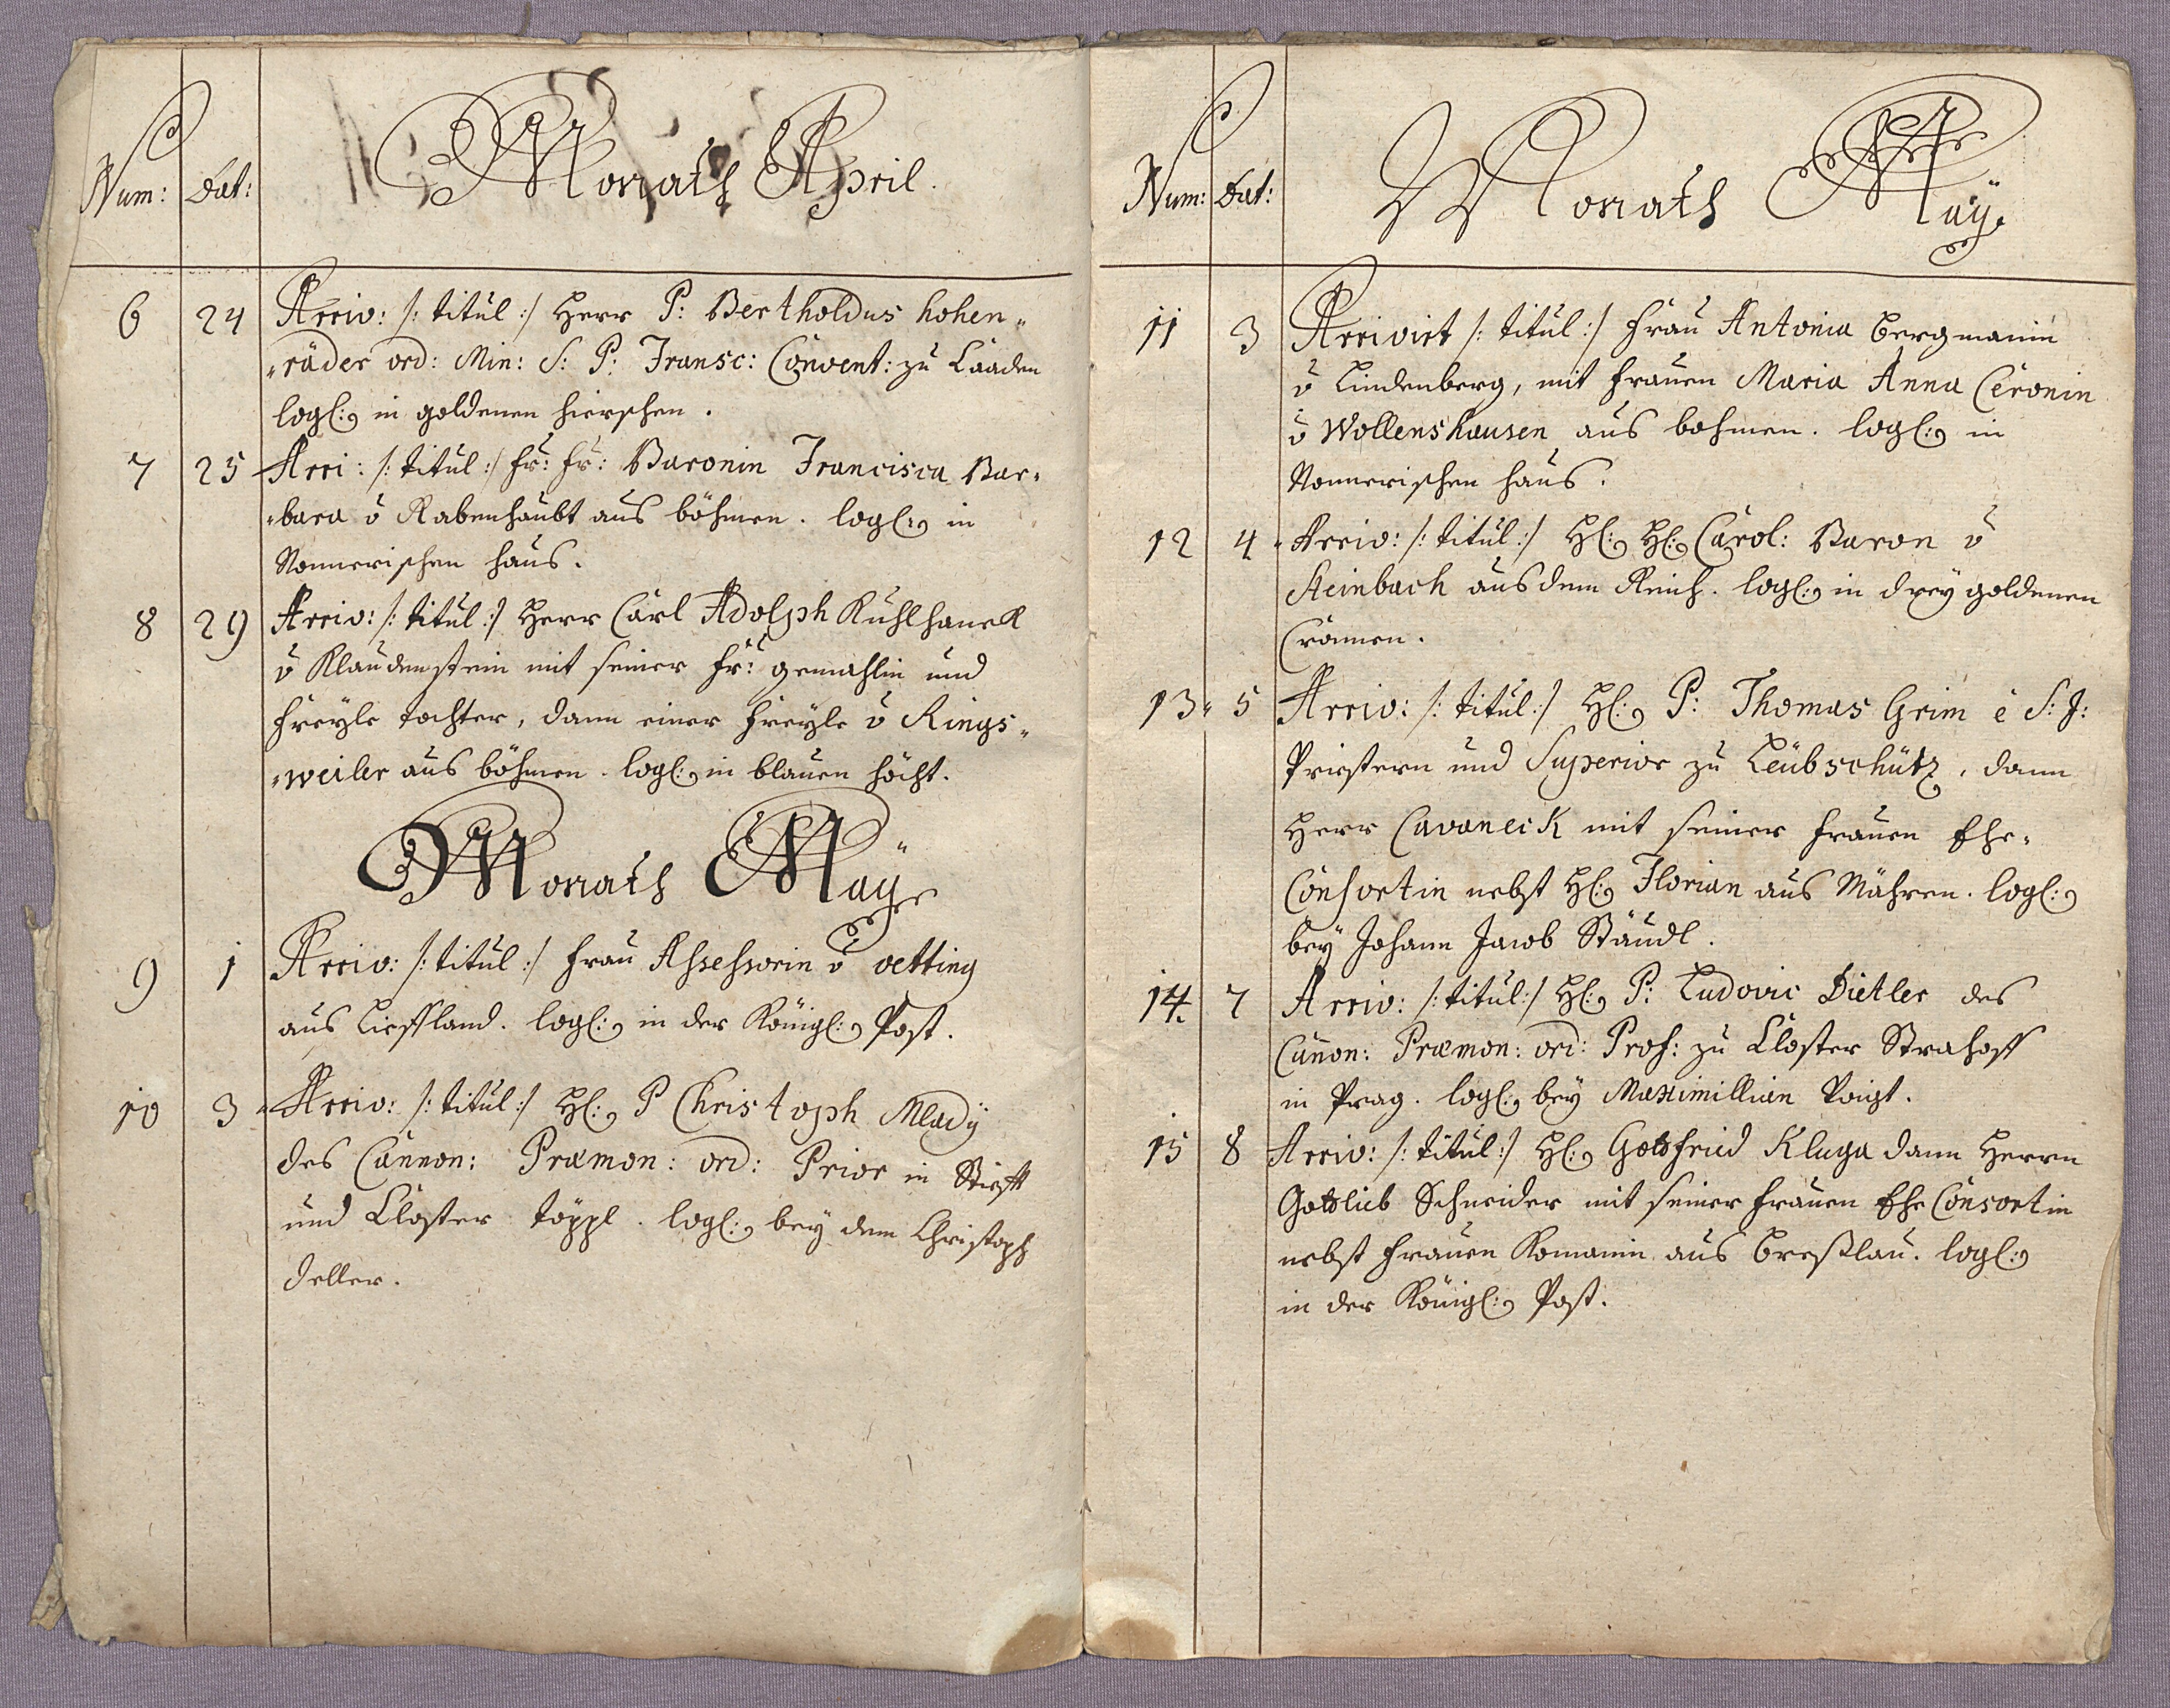 Num: Dat: Monath April.
6 24 Arriv: /: titul :/ Herr P: Bertholdus hohen„
„räder ord: Min: S: P: Fransc: Convent: zu Caaden
logl: in goldenen hierschen.
7 25 Arri: /: titul :/ Fr: Fr: Baronin Francisca Bar„
„bara v Rabenhaubt aus böhmen. logl: in
Nonnerischen haus.
8 29 Arriv: /: titul :/ Herr Carl Adolph Kuhlhanek
v Klaudenstein mit seiner Fr: gemahlin und
Freyle tochter, dann einer Freyle v Rings„
„weiler aus böhmen. logl: in blauen höcht.
Monath May
9 1 Arriv: /: titul :/ Frau Assessorin v oetting
aus Lieffland. logl: in der Königl: Post.
10 3 Arriv: /: titul :/ Hl: P Christoph Mladÿ
des Cannon: Præmon: ord: Prior in Stifft
und Closter töppl. logl: bey dem Christoph
deller.
Num: Dat: Monath Maÿ
11 3 Arrivirt /: titul :/ Frau Antonia Bergmanin
v Lindenberg, mit Frauen Maria Anna Ceronin
v Wollenshausen aus bohmen. logl: in
Nonnerischen haus.
12 4 Arriv: /: titul :/ Hl: Hl: Carol: Baron v
Steinbach aus dem Reich. logl: in dreÿ goldenen
Cronnen.
13 5 Arriv: /: titul :/ Hl: P: Thomas Grim è S: J:
Priestern und Superior zu Leübschütz, dann
Herr Cavaneck mit seiner Frauen Ehe„
Consortin nebst Hl: Florian aus Mähren. logl:
beÿ Johann Jacob Ständl.
14. 7 Arriv: /: titul :/ Hl: P: Ludovic Dietler des
Canon: Præmon: ord: Prof: zu Closter Strahoff
in Prag. logl: beÿ Maximillian Voigt.
15 8 Arriv: /: titul :/ Hl: Gottfried Kluga dann Herrn
Gottlieb Schneider mit seiner Frauen Ehe Consortin
nebst Frauen Romanin aus Breßlau. logl:
in der Königl: Post.